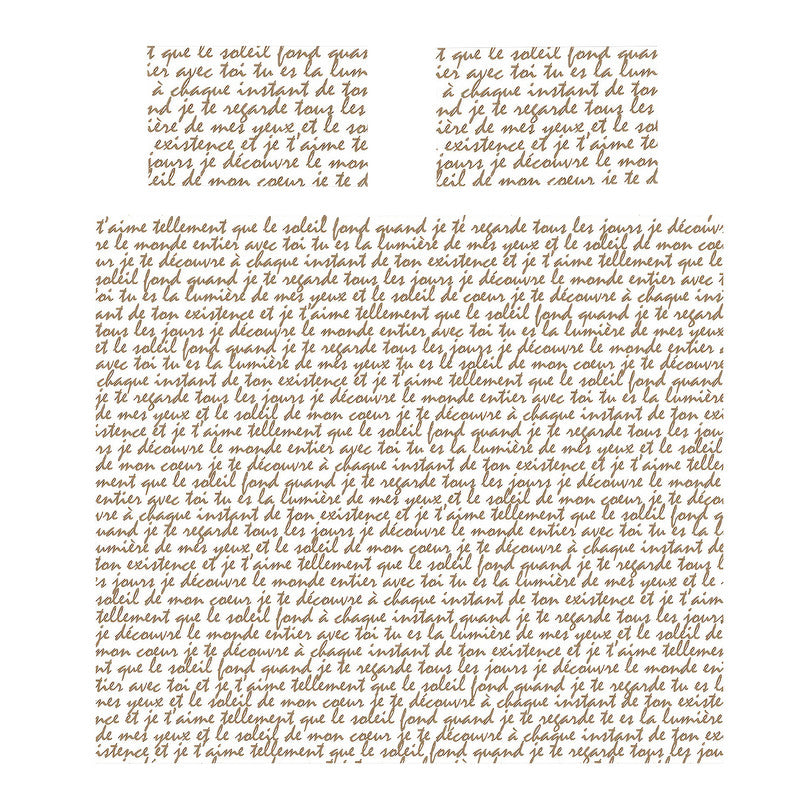 t que le soleil fond quas
ier avec toi tu es la lum
à chaque instant de ton
nd je te regarde tous les
ière de mes yeux et le so
existence et je t'aime te
jours je découvre le mon
leil de mon coeur je te d
t que le soleil fond quas
ier avec toi tu es la lum
à chaque instant de ton
nd je te regarde tous les
ière de mes yeux et le sol
existence et je t'aime te
jours je découvre le mon
leil de mon coeur je te d
t'aime tellement que le soleil fond quand je te regarde tous les jours je découv
re le monde entier avec toi tu es la lumière de mes yeux et le soleil de mon coe
ur je te découvre à chaque instant de ton existence et je t'aime tellement que le
soleil fond quand je te regarde tous les jours je découvre le monde entier avec t
oi tu es la lumière de mes yeux et le soleil de coeur je te découvre à chaque ins
ant de ton existence et je t'aime tellement que le soleil fond quand je te regard
tous les jours je découvre le monde entier avec toi tu es la lumière de mes yeux
et le soleil fond quand je te regarde tous les jours je découvre le monde entier
avec toi tu es la lumière de mes yeux tu es le soleil de mon coeur je te découvre
chaque instant de ton existence et je t'aime tellement que le soleil fond quand
je te regarde tous les jours je découvre le monde entier avec toi tu es la lumière
de mes yeux et le soleil de mon coeur je te découvre à chaque instant de ton exi
istence et je t'aime tellement que le soleil fond quand je te regarde tous les jou
rs je découvre le monde entier avec toi tu es la lumière de mes yeux et le soleil
de mon coeur je te découvre à chaque instant de ton existence et je t'aime telle
ment que le soleil fond quand je te regarde tous les jours je découvre le monde
entier avec toi tu es la lumière de mes yeux et le soleil de mon coeur je te déco
vre à chaque instant de ton existence et je t'aime tellement que le soleil fond q
uand je te regarde tous les jours je découvre le monde entier avec toi tu es la l
umière de mes yeux et le soleil de mon coeur je te découvre à chaque instant de
ton existence et je t'aime tellement que le soleil fond quand je te regarde tous l
s jours je découvre le monde entier avec toi tu es la lumière de mes yeux et le
soleil de mon coeur je te découvre à chaque instant de ton existence et je t'aim
tellement que le soleil fond à chaque instant quand je te regarde tous les jours
je découvre le monde entier avec toi tu es la lumière de mes yeux et le soleil de
mon coeur je te découvre à chaque instant de ton existence et je t'aime tellemes
nt que le soleil fond quand je te regarde tous les jours je découvre le monde en
tier avec toi et je t'aime tellement que le soleil fond quand je te regarde tu es l
mes yeux et le soleil de mon coeur je te découvre à chaque instant de ton existe
nce et je t'aime tellement que le soleil fond quand je te regarde te es la lumière
de mes yeux et le soleil de mon coeur je te découvre à chaque instant de ton ex
istence et je t'aime tellement que le soleil fond quand je te regarde tous les jou